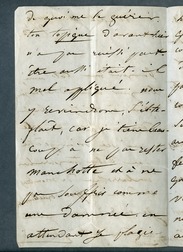 de quoi me le guérir
ton topique d'avant-hier
n'a pas réussi peut
être aussi était-il
mal appliqué nous
y reviendrons, s'il te
plaît, car je tiens beau
coup à ne pas rester
manchotte et à ne
pas souffrir comme
une damnée en
attendant je